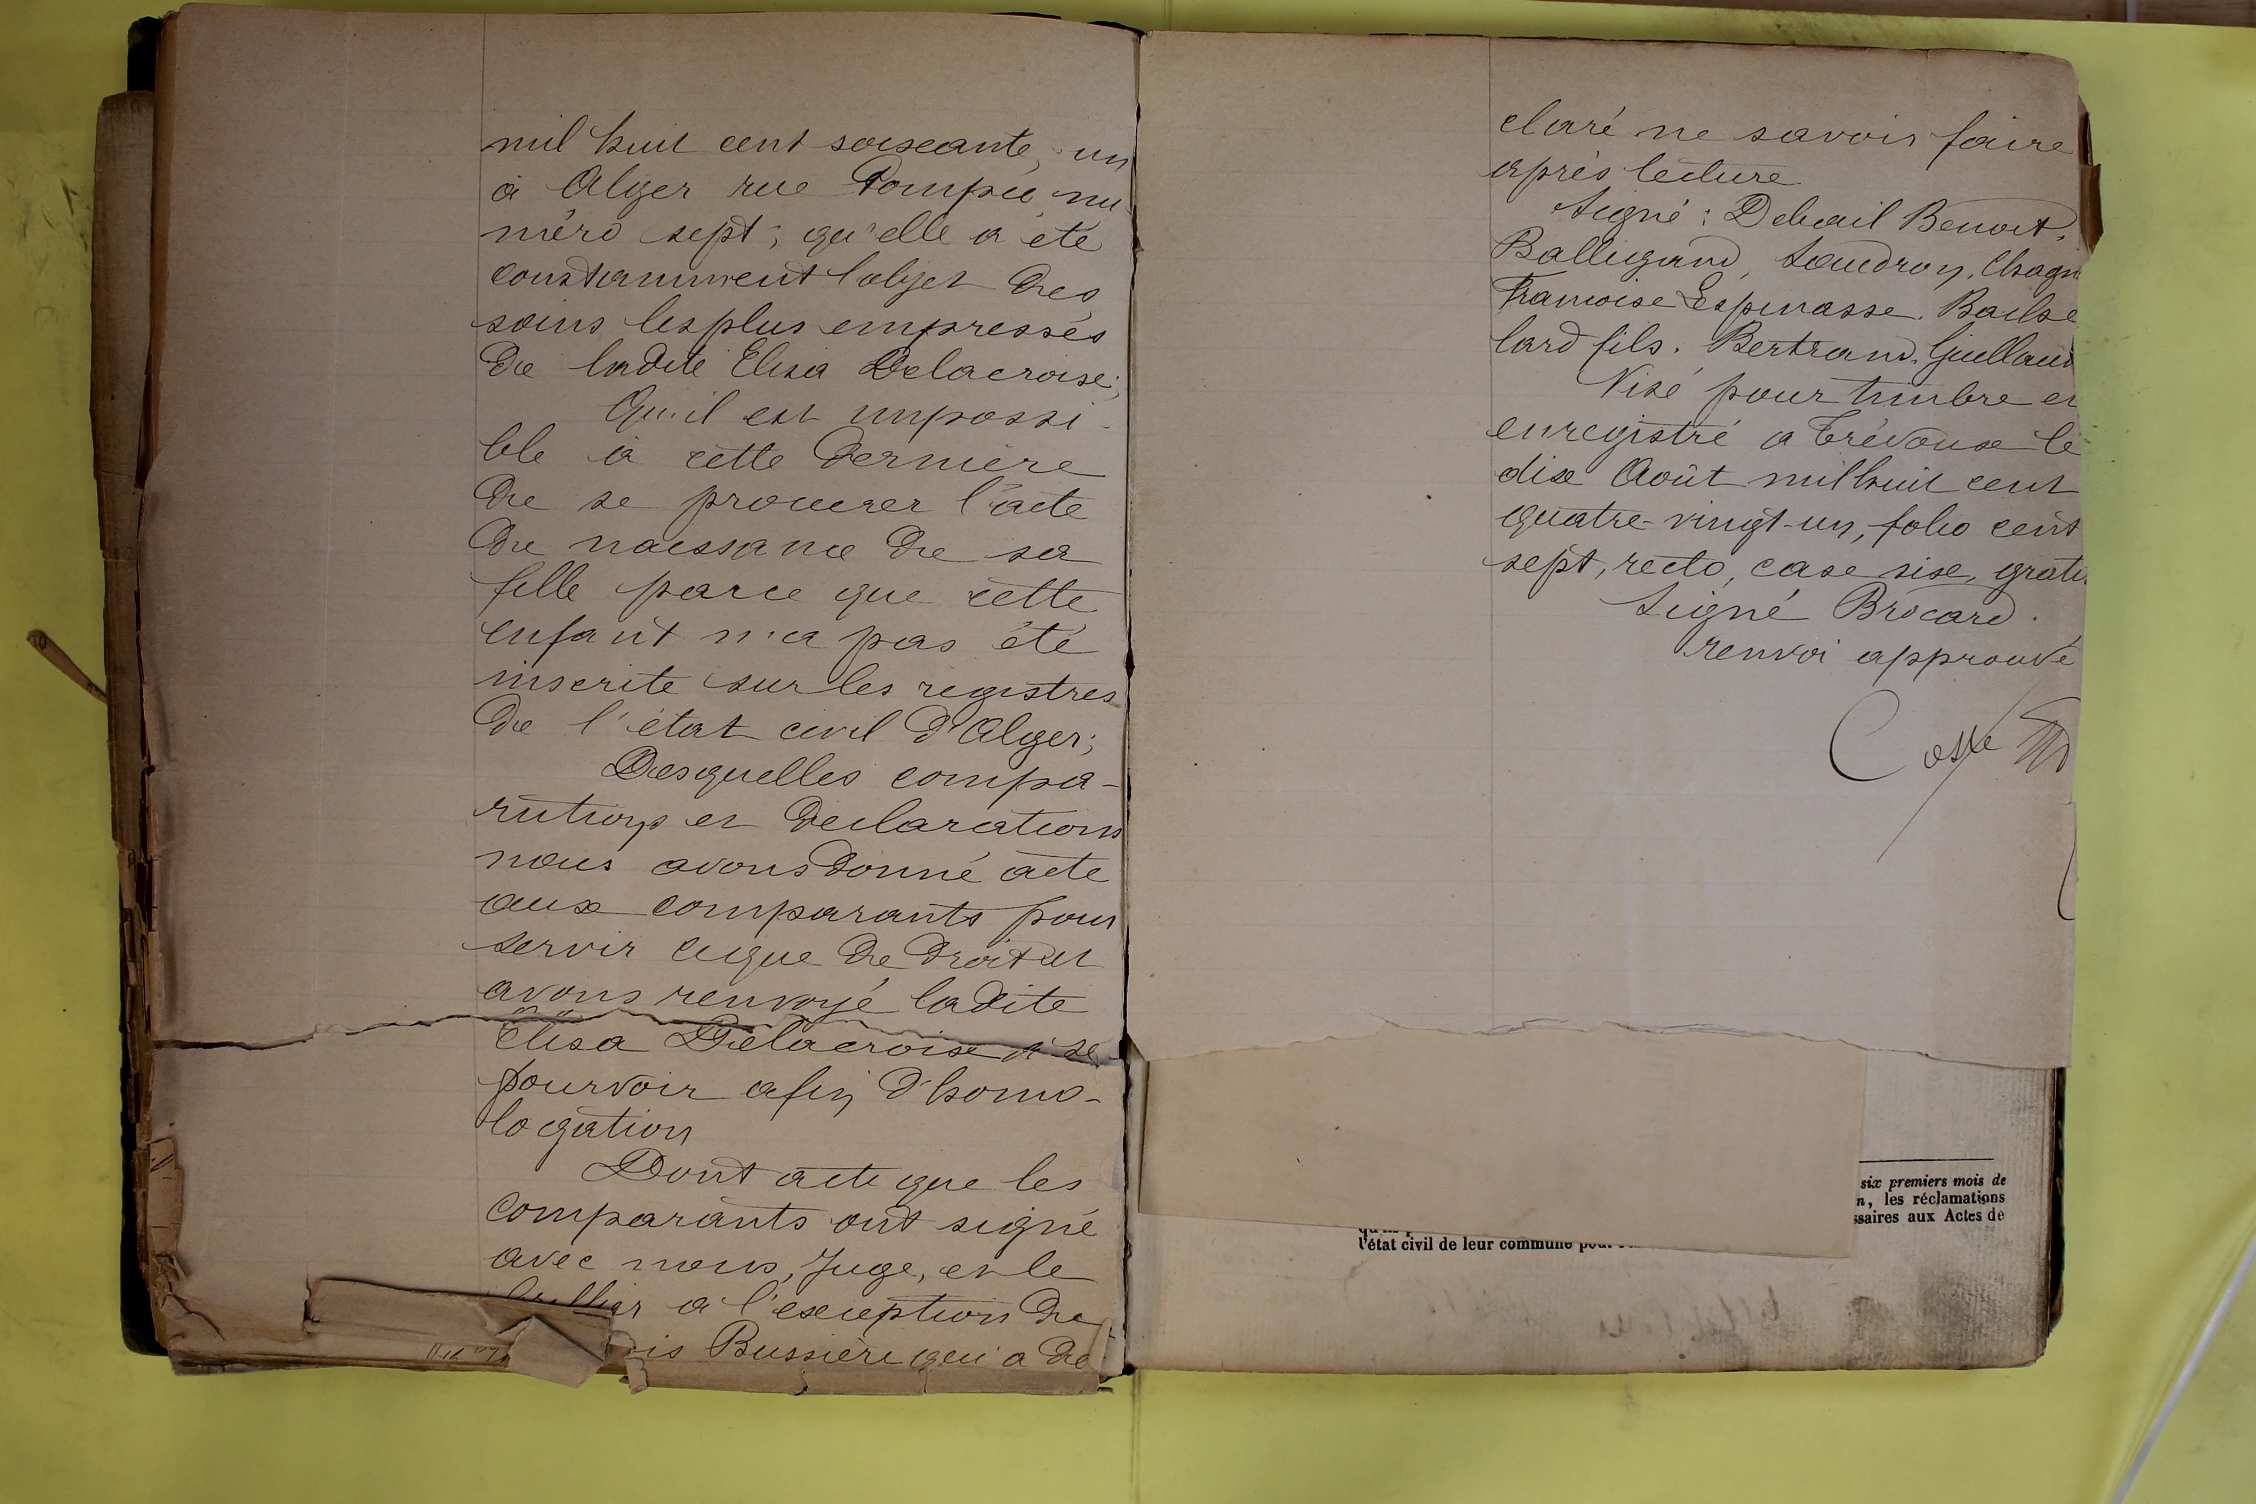 mil huit cent soixante, un
à Alger rue Pompée, nu
méro sept; qu'elle a été
constamment l'objet des
soins les plus empressés
de ladite Elisa Delacroix;
Qu'il est impossi-
ble à cette dernière
de se procurer l'acte
de naissance de sa
fille parce que cette
enfant n'a pas été
inscrite sur les registres
de l'état civil d'Alger;
Desquelles compa-
rutions et déclarations
nous avons donné acte
aux comparants pour
servir ce que de droit et
avons renvoyé ladite
Elisa Delacroix à se
pourvoir afin d'homo-
logation
Dont acte que les
comparants ont signé
avec nous, Juge, et le
à l'exception de
Bussière qui a dé
claré ne savoir faire
après lecture
Signé: Debail Benoit.
Balligand, Soudron, Chagn
Francoise Lespinasse. Bachе
lard fils. Bertrand. Guillaud
Visé pour timbre et
enregistré a Trévoux le
dix Août mil huit cent
quatre-vingt-un, folio cent
sept, recto, case six, gratis
Signé Brocard.
renvoi approuvé
Coste
six premiers mois de
n, les réclamations
ssaires aux Actes de
l'état civil de leur commune pour